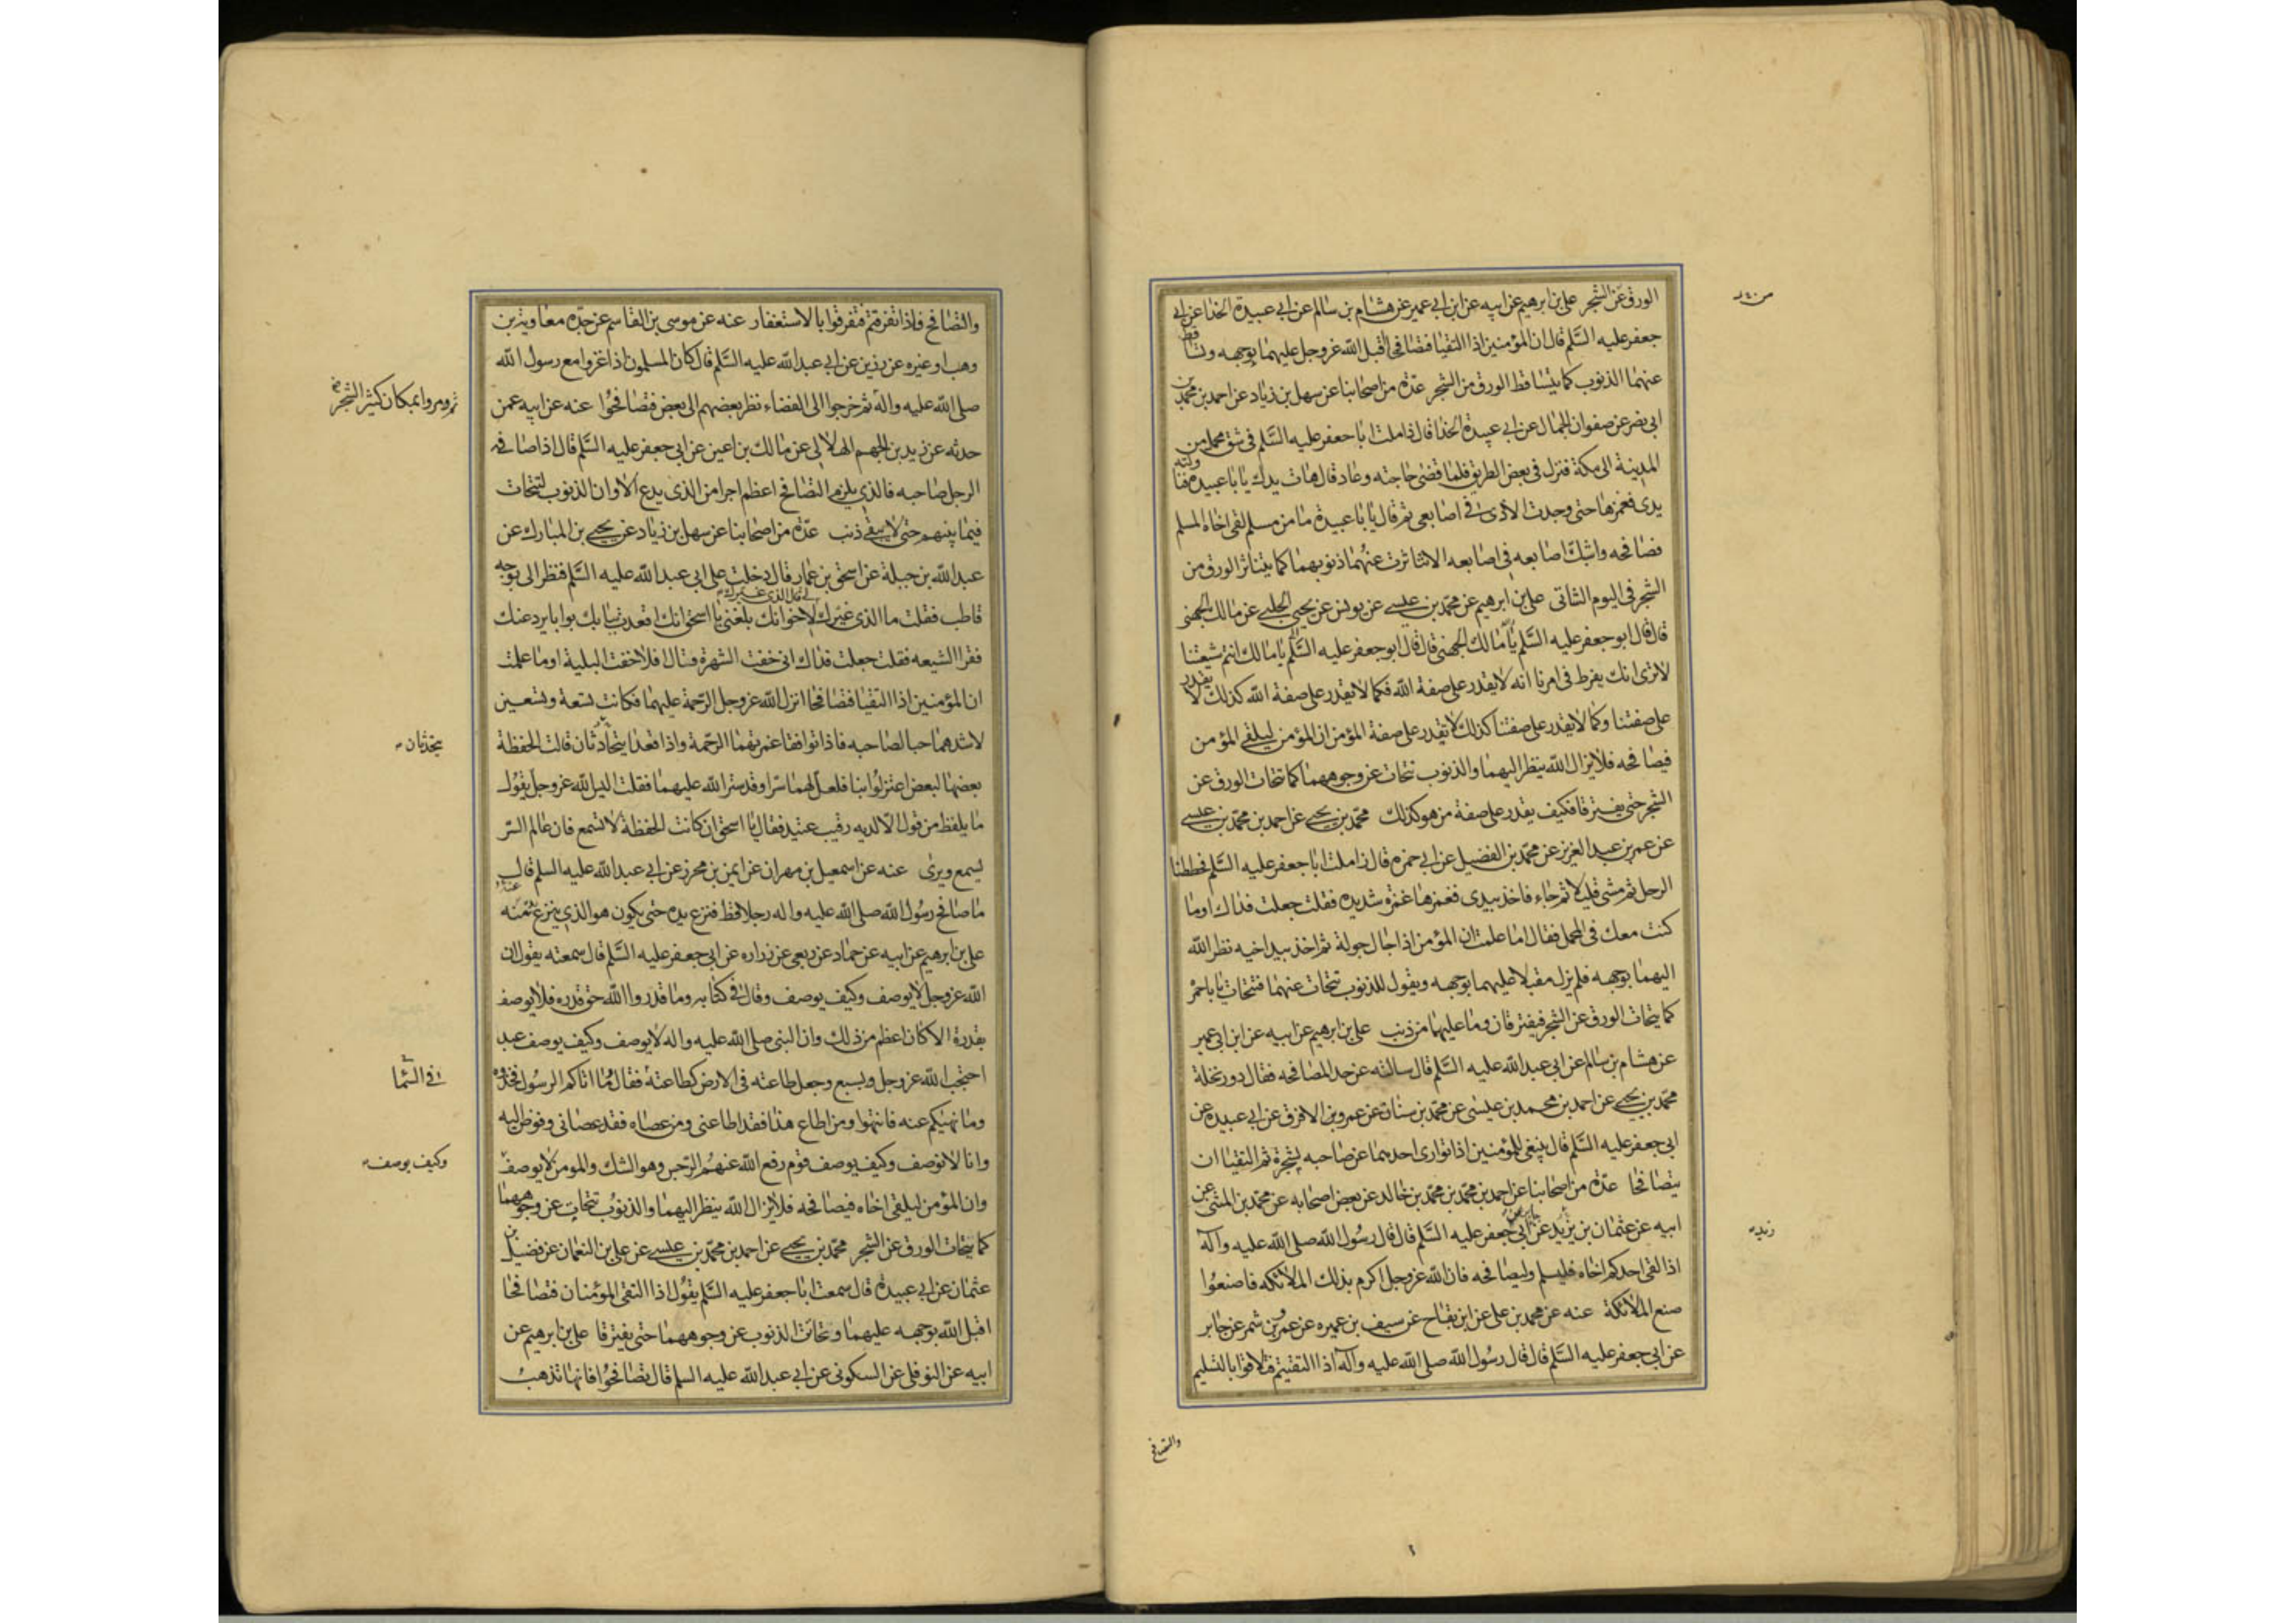 الورق عن الشجر علي بن ابرهيم عن ابيه عن ابن ابي عمير عن هشام بن سالم عن ابي عبيدة الحذا عن ابي
جعفر عليه السلم قال ان المؤمنين اذا التقيا فتصافحا اقبل الله عز وجل عليهما بوجهه وتساقط
عنهما الذنوب كما يتساقط الورق من الشجر عدة من اصحابنا عن سهل بن زياد عن احمد بن محمد بن
ابي نصر عن صفوان الجمال عن ابي عبيدة الحذا قال زاملت ابا جعفر عليه السلم في شق محمل من
المدينة الى مكة فنزل في بعض الطريق فلما قضى حاجته وعاد قال هات يدك يا با عبيدة فناولته
يدي فغمزها حتى وجدت الاذى في اصابعي ثم قال يا با عبيدة ما من مسلم لقى اخاه المسلم
فصافحه وشبك اصابعه في اصابعه الا تناثرت عنهما ذنوبهما كما يتناثر الورق من
الشجر في اليوم الشاتي علي بن ابرهيم عن محمد بن عيسى عن يونس عن يحيى الحلبي عن مالك الجهني
قال قال ابو جعفر عليه السلم يا مالك الجهني قال قال ابو جعفر عليه السلم يا مالك انتم شيعتنا
لا ترى انك يفرط في امرنا انه لا يقدر على صفة الله فكما لا يقدر على صفة الله كذلك لا يقدر
على صفتنا وكما لا يقدر على صفتنا كذلك لا يقدر على صفة المؤمن ان المؤمن ليلقى المؤمن
فيصافحه فلا يزال الله ينظر اليهما والذنوب تتحات عن وجوههما كما تتحات الورق عن
الشجر حتى يفترقا فكيف يقدر على صفة من هو كذلك محمد بن يحيى عن احمد بن محمد بن عيسى
عن عمر بن عبد العزيز عن محمد بن الفضيل عن ابي حمزه قال زاملت ابا جعفر عليه السلم فحططنا
الرحل ثم مشى قليلا ثم جاء فاخذ بيدي فغمزها غمزه شديده فقلت جعلت فداك اوما
كنت معك في المحمل فقال اما علمت ان المؤمن اذا جال جولة ثم اخذ بيد اخيه نظر الله
اليهما بوجهه فلم يزل مقبلا عليهما بوجهه ويقول للذنوب تتحات عنهما فتتحات يا با حمزة
كما يتحات الورق عن الشجر فيفترقان وما عليهما من ذنب علي بن ابرهيم عن ابيه عن ابن ابي عمير
عن هشام بن سالم عن ابي عبد الله عليه السلم قال سالته عن حد المصافحه فقال دور نخلة
محمد بن يحيى عن احمد بن محمد بن عيسى عن محمد بن سنان عن عمرو بن الافرق عن ابي عبيده عن
ابي جعفر عليه السلم قال ينبغي للمؤمنين اذا توارى احدهما عن صاحبه بشجرة ثم التقيا ان
يتصافحا عدة من اصحابنا عن احمد بن محمد بن محمد بن خالد عن بعض اصحابه عن محمد بن المثنى عن
ابيه عن عثمان بن يزيد عن جابر عن ابي جعفر عليه السلم قال قال رسول الله صلى الله عليه وآله
اذا لقى احدكم اخاه فليسلم وليصافحه فان الله عز وجل اكرم بذلك الملائكه فاصنعوا
صنع الملائكة عنه عن محمد بن علي عن ابن بقاح عن سيف بن عميره عن عمرو بن شمر عن جابر
عن ابي جعفر عليه السلم قال قال رسول الله صلى الله عليه وآله اذا التقيتم فتلاقوا بالتسليم
زيد
والتصافح
والتصافح فاذا تفرقتم فتفرقوا بالاستغفار عنه عن موسى بن القاسم عن جده معاوية بن
وهب او غيره عن رزين عن ابي عبد الله عليه السلم قال كان المسلمون اذا غزوا مع رسول الله
صلى الله عليه واله ثم خرجوا الى الفضاء نظر بعضهم الى بعض فتصافحوا عنه عن ابيه عمن
ومروا بمكان كثير الشجر
حدثه عن زيد بن الجهم الهلالي عن مالك بن اعين عن ابي جعفر عليه السلم قال اذا صافح
الرجل صاحبه فالذي يلزم التصافح اعظم اجرا من الذي يدع الا وان الذنوب لتتحات
فيما بينهم حتى لا يبقى ذنب عدة من اصحابنا عن سهل بن زياد عن يحيى بن المبارك عن
عبد الله بن جبلة عن اسحق بن عمار قال دخلت على ابي عبد الله عليه السلم فنظر الى بوجه
قاطب فقلت ما الذي غيرك لي قال الذي غيرك لاخوانك بلغني يا اسحق انك اقعدت ببابك بوابا يرد عنك
فقرا الشيعه فقلت جعلت فداك اني خفت الشهرة فقال افلا خفت البلية اوما علمت
ان المؤمنين اذا التقيا فتصافحا انزل الله عز وجل الرحمة عليهما فكانت تسعة وتسعين
لاشدهما حبا لصاحبه فاذا توافقا غمرتهما الرحمة واذا قعدا يتحادثان قالت الحفظة
يتحدثان
بعضها لبعض اعتزلوا بنا فلعل لهما سرا وقد ستر الله عليهما فقلت اليس الله عز وجل يقول
ما يلفظ من قول الا لديه رقيب عتيد فقال يا اسحق ان كانت الحفظة لا تسمع فان عالم السر
يسمع ويرى عنه عن اسمعيل بن مهران عن ايمن بن محرز عن ابي عبد الله عليه السلم قال
ما صافح رسول الله صلى الله عليه واله رجلا قط فنزع يده حتى يكون هو الذي ينزع منه
علي بن ابرهيم عن ابيه عن حماد عن ربعي عن زراره عن ابي جعفر عليه السلم قال سمعته يقول ان
الله عز وجل لا يوصف وكيف يوصف وقال في كتابه وما قدروا الله حق قدره فلا يوصف
بقدرة الا كان اعظم من ذلك وان النبي صلى الله عليه واله لا يوصف وكيف يوصف عبد
احتجب الله عز وجل وبسبع وجعل طاعته في الارض كطاعته فقال وما اتاكم الرسول فخذوه
في السما
وما نهيكم عنه فانتهوا ومن اطاع هذا فقد اطاعني ومن عصاه فقد عصاني وفوض اليه
وانا لا نوصف وكيف يوصف قوم رفع الله عنهم الرجس وهو الشك والمومن لا يوصف
وكيف يوصف
وان المؤمن ليلقى اخاه فيصافحه فلا يزال الله ينظر اليهما والذنوب تتحات عن وجوههما
كما يتحات الورق عن الشجر محمد بن يحيى عن احمد بن محمد بن عيسى عن علي بن النعمان عن فضيل بن
عثمان عن ابي عبيدة قال سمعت ابا جعفر عليه السلم يقول اذا التقى المؤمنان فتصافحا
اقبل الله بوجهه عليهما وتحاتت الذنوب عن وجوههما حتى يفترقا علي بن ابرهيم عن
ابيه عن النوفلي عن السكوني عن ابي عبد الله عليه السلم قال تصافحوا فانها تذهب